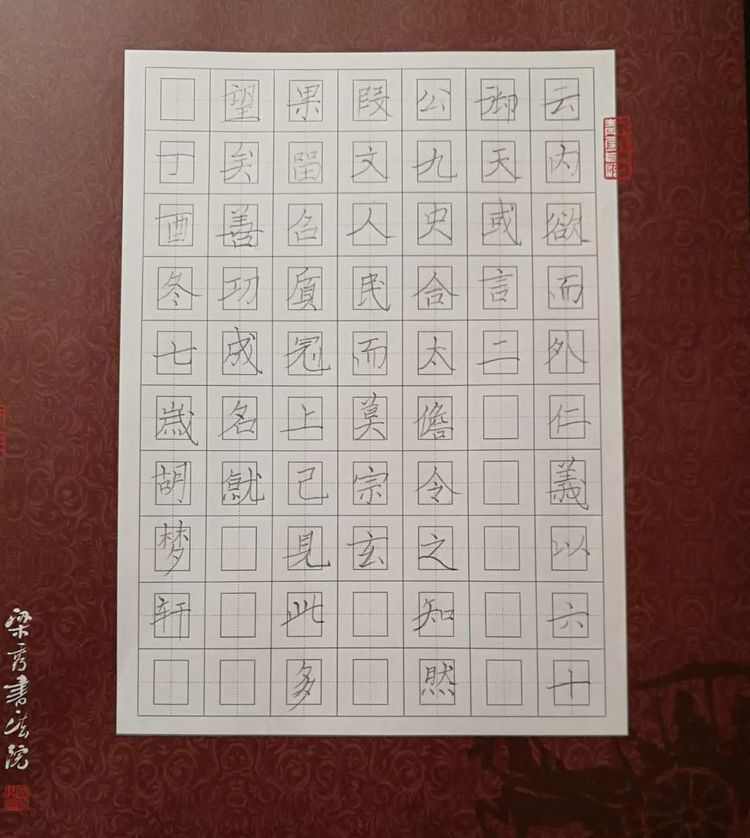 云内欲而外仁義以六十
天或言二
公九史合太儋令之知然
段文人民而莫宗玄
果留名質冠上己見此多
望矣善功成名就
丁酉冬七歲胡梦軒
梁秀書法院